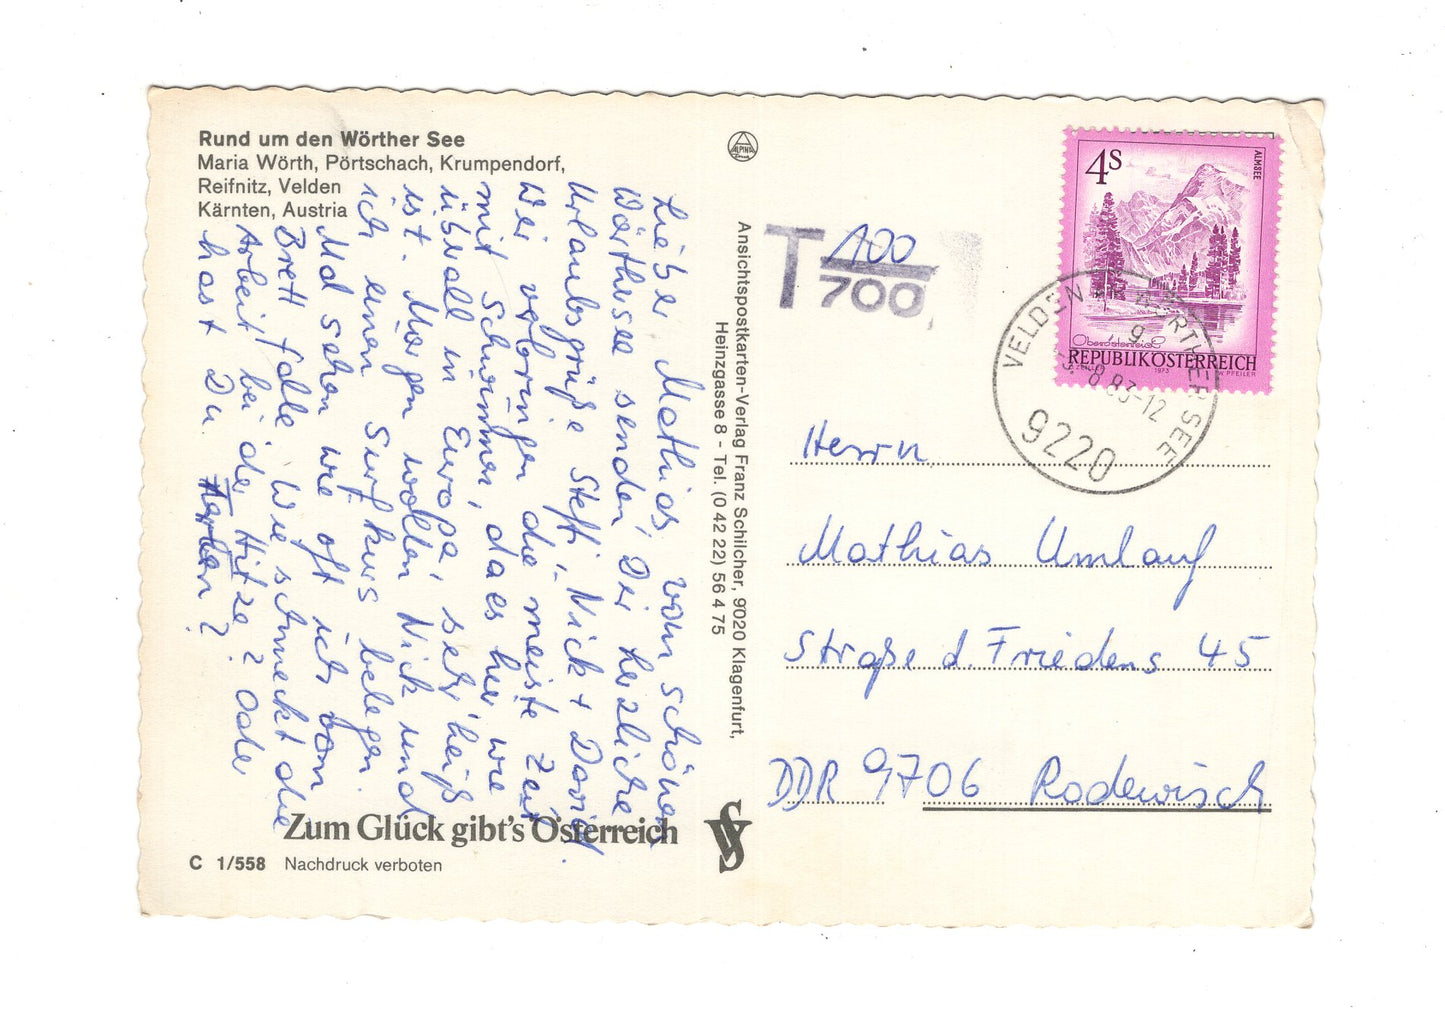 Rund um den Wörther See
Maria Wörth, Pörtschach, Krumpendorf,
Reifnitz, Velden
Kärnten, Austria
Lieber Mathias, vom schönen
Wörthersee senden Dir herzliche
Urlaubsgrüße Steffi, Nick + David.
Wir verbringen die meiste Zeit
mit Schwimmen, da es hier wie
überall in Europa, sehr heiß
ist. Morgen wollen Nick und
ich einen Surfkurs belegen.
Mal sehen wie oft ich vom
Brett falle. Wie schmeckt die
Arbeit bei der Hitze? Oder
hast Du Ferien?
Zum Glück gibt's Österreich
C 1/558 Nachdruck verboten
ALPINA
Druck
Ansichtspostkarten-Verlag Franz Schilcher, 9020 Klagenfurt,
Heinzgasse 8 - Tel. (0 42 22) 56 4 75
T 100
700
4S
ALMSEE
Oberösterreich
REPUBLIK ÖSTERREICH
1973 W. PFEILER
VELDEN A WÖRTHER SEE
g
8.83-12
9220
Herrn
Mathias Umlauf
Straße d. Friedens 45
DDR 9706 Rodewisch